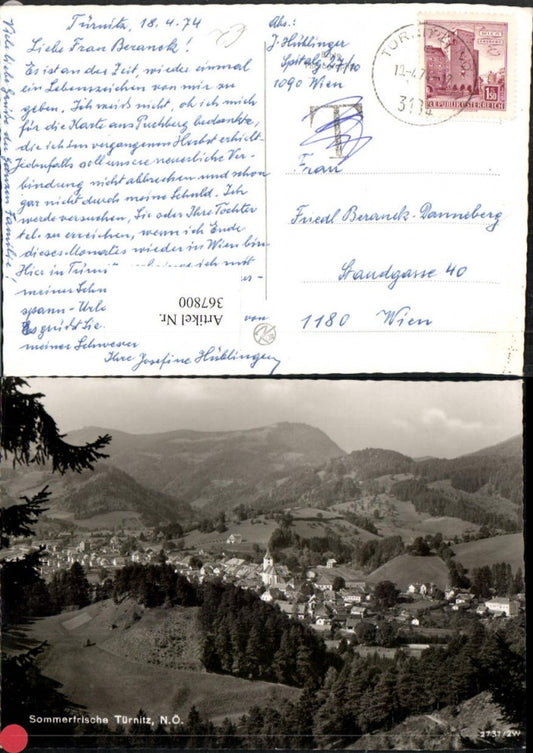 Türnitz, 18.4.74
Liebe Frau Beranek!
Es ist an der Zeit, wieder einmal
ein Lebenszeichen von mir zu
geben. Ich weiß nicht, ob ich mich
für die Karte aus Puchberg bedankte,
die ich im vergangenen Herbst erhielt.
Jedenfalls soll unsere neuerliche Ver-
bindung nicht abbrechen und schon
gar nicht durch meine Schuld. Ich
werde versuchen, Sie oder Ihre Tochter
tel. zu erreichen, wenn ich Ende
dieses Monates wieder in Wien bin
Hier in Türni ich mit
meiner Schw
spann-Urla
Es grüßt Sie von
meiner Schwester
Ihre Josefine Hühlinger
Viele liebe Grüße der ganzen Familie!
Abs.:
J. Hühlinger
Spitalg.
1090 Wien
3184
REPUBLIK ÖSTERREICH
1.50
T
Frau
Friedl Beranek-Danneberg
Staudgasse 40
1180 Wien
Artikel Nr.
367800
Sommerfrische Türnitz, N.Ö.
2731/2W